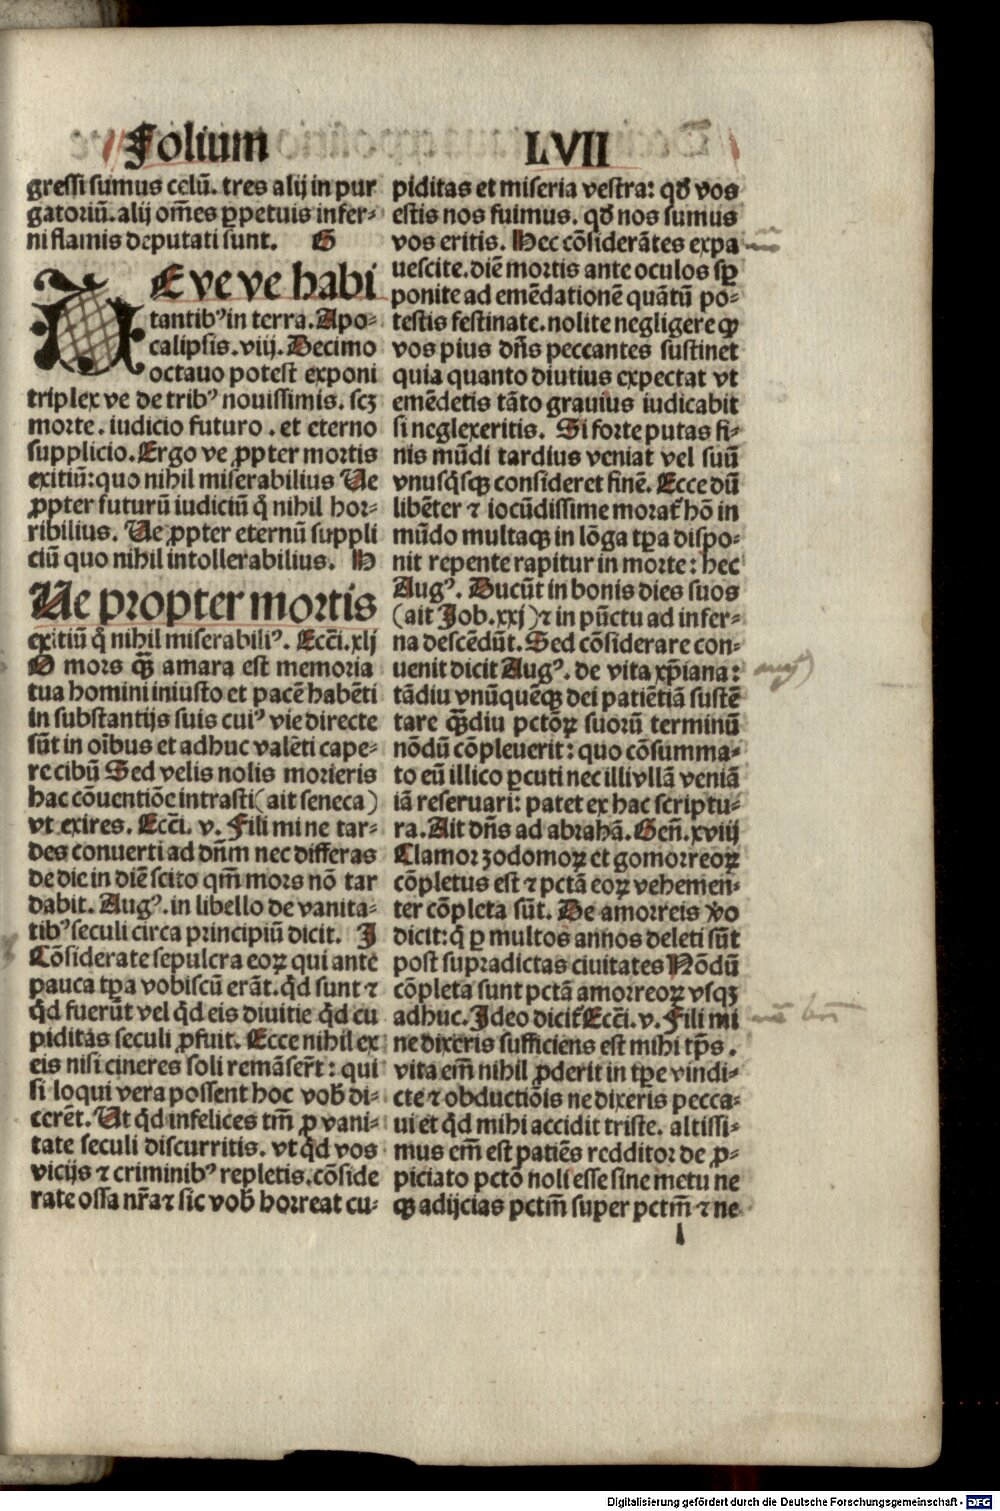 Folium LVII
gressi sumus celū. tres alij in pur
gatoriū. alij om̄es ꝑpetuis infer-
ni flamis deputati sunt. G
VE ve ve habi
tantibꝰ in terra. Apo-
calipsis. viij. Decimo
octauo potest exponi
triplex ve de tribꝰ nouissimis. scꝫ
morte. iudicio futuro. et eterno
supplicio. Ergo ve ꝓpter mortis
exitiū: quo nihil miserabilius Ue
ꝓpter futurū iudiciū q̄ nihil hor-
ribilius. Ue ꝓpter eternū suppli
ciū quo nihil intollerabilius. H
Ue propter mortis
exitiū q̄ nihil miserabiliꝰ. Ecc̄i. xlj
O mors qȝ̄ amara est memoria
tua homini iniusto et pacē habēti
in substantijs suis cuiꝰ vie directe
sūt in oībus et adhuc valēti cape-
re cibū Sed velis nolis morieris
hac cōuentiōe intrasti (ait seneca)
vt exires. Ecc̄i. v. Fili mi ne tar-
des conuerti ad dn̄m nec differas
de die in diē scito qm̄ mors nō tar
dabit. Augꝰ. in libello de vanita-
tibꝰ seculi circa principiū dicit. I
Cōsiderate sepulcra eoꝝ qui ante
pauca tp̄a vobiscū erāt. qd̄ sunt ⁊
qd̄ fuerūt vel qd̄ eis diuitie qd̄ cu
piditas seculi ꝓfuit. Ecce nihil ex
eis nisi cineres soli remāser̄t: qui
si loqui vera possent hoc vob̄ di-
cerēt. Ut qd̄ infelices tm̄ ꝓ vani-
tate seculi discurritis. vt qd̄ vos
vicijs ⁊ criminibꝰ repletis. cōside
rate ossa nr̄a ⁊ sic vob̄ horreat cu-
piditas et miseria vestra: qd̄ vos
estis nos fuimus. qd̄ nos sumus
vos eritis. Hec cōsiderātes expa
uescite. diē mortis ante oculos sꝑ
ponite ad emēdationē quātū po-
testis festinate. nolite negligere qꝫ
vos pius dn̄s peccantes sustinet
quia quanto diutius expectat vt
emēdetis tāto grauius iudicabit
si neglexeritis. Si forte putas fi-
nis mūdi tardius veniat vel suū
vnusq̄sqꝫ consideret finē. Ecce dū
libēter ⁊ iocūdissime morat̄ hō in
mūdo multaqꝫ in lōga tp̄a dispo-
nit repente rapitur in morte: hec
Augꝰ. Ducūt in bonis dies suos
(ait Job. xxj) ⁊ in pūctu ad infer-
na descēdūt. Sed cōsiderare con-
uenit dicit Augꝰ. de vita xp̄iana:
tādiu vnūquēqꝫ dei patiētiā sustē
tare qȝ̄diu pctōꝝ suorū terminū
nōdū cōpleuerit: quo cōsumma-
to eū illico ꝑcuti nec illi vllā veniā
iā reseruari: patet ex hac scriptu-
ra. Ait dn̄s ad abrahā. Gen̄. xviij
Clamor zodomoꝝ et gomorreoꝝ
cōpletus est ⁊ pctā eoꝝ vehemen-
ter cōpleta sūt. De amorreis v̄o
dicit: q̄ ꝑ multos annos deleti sūt
post supradictas ciuitates Nōdū
cōpleta sunt pctā amorreoꝝ vsqꝫ
adhuc. Ideo dicit̄ Ecc̄i. v. Fili mi
ne dixeris sufficiens est mihi tp̄s.
vita em̄ nihil ꝓderit in tp̄e vindi-
cte ⁊ obductiōis ne dixeris pecca-
ui et qd̄ mihi accidit triste. altissi-
mus em̄ est patiēs redditor de ꝓ-
piciato pctō noli esse sine metu ne
qꝫ adijcias pctm̄ super pctm̄ ⁊ ne
l
Digitalisierung gefördert durch die Deutsche Forschungsgemeinschaft - DFG